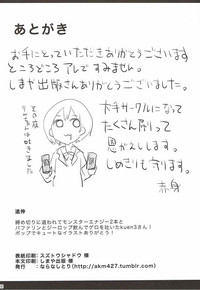 あとがき
お手にとっていただきありがとうございます
ところどころ アレですみません。
しまや出版さんありがとうございました。
大手サークルになって
たくさん刷って
恩がえしします。
しめきりも守ります。
赤身
追伸
締め切りに追われてモンスターエナジー2本と
バファリンとジーロップ飲んでゲロを吐いたkuen3さん!
ポップでキュートなイラストありがとう!
表紙印刷:スズトウシャドウ 様
本文印刷:しまや出版 様
発行:ならなしとり(http://akm427.tumblr.com)